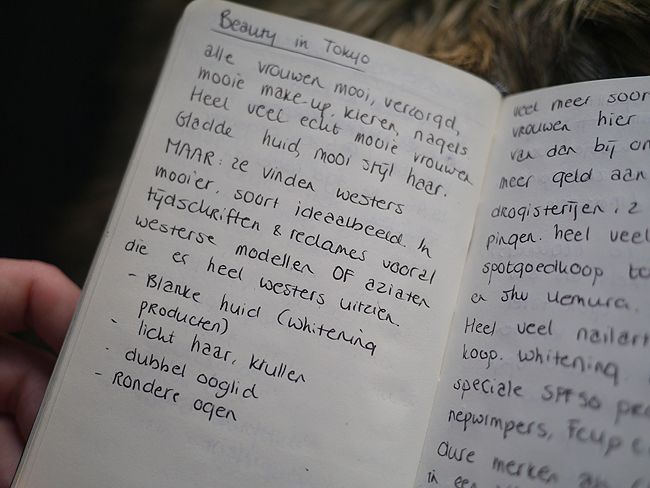 Beauty in Tokyo
alle vrouwen mooi, verzorgd,
mooie make-up, kleren, nagels
Heel veel echt mooie vrouwen
Gladde huid, mooi stijl haar.
MAAR: ze vinden westers
mooier. soort ideaalbeeld. In
tijdschriften & reclames vooral
westerse modellen OF aziaten
die er heel westers uitzien.
- Blanke huid (whitening
producten)
- licht haar, krullen
- dubbel ooglid
- Rondere ogen
veel meer soor
vrouwen hier
van dan bij on
meer geld aan
drogisterijen, 2
pingen. heel veel
spotgoedkoop to
en Shu Uemura.
Heel veel nailart
koop. whitening
speciale SPF50 pro
nepwimpers,
dure merken
in een